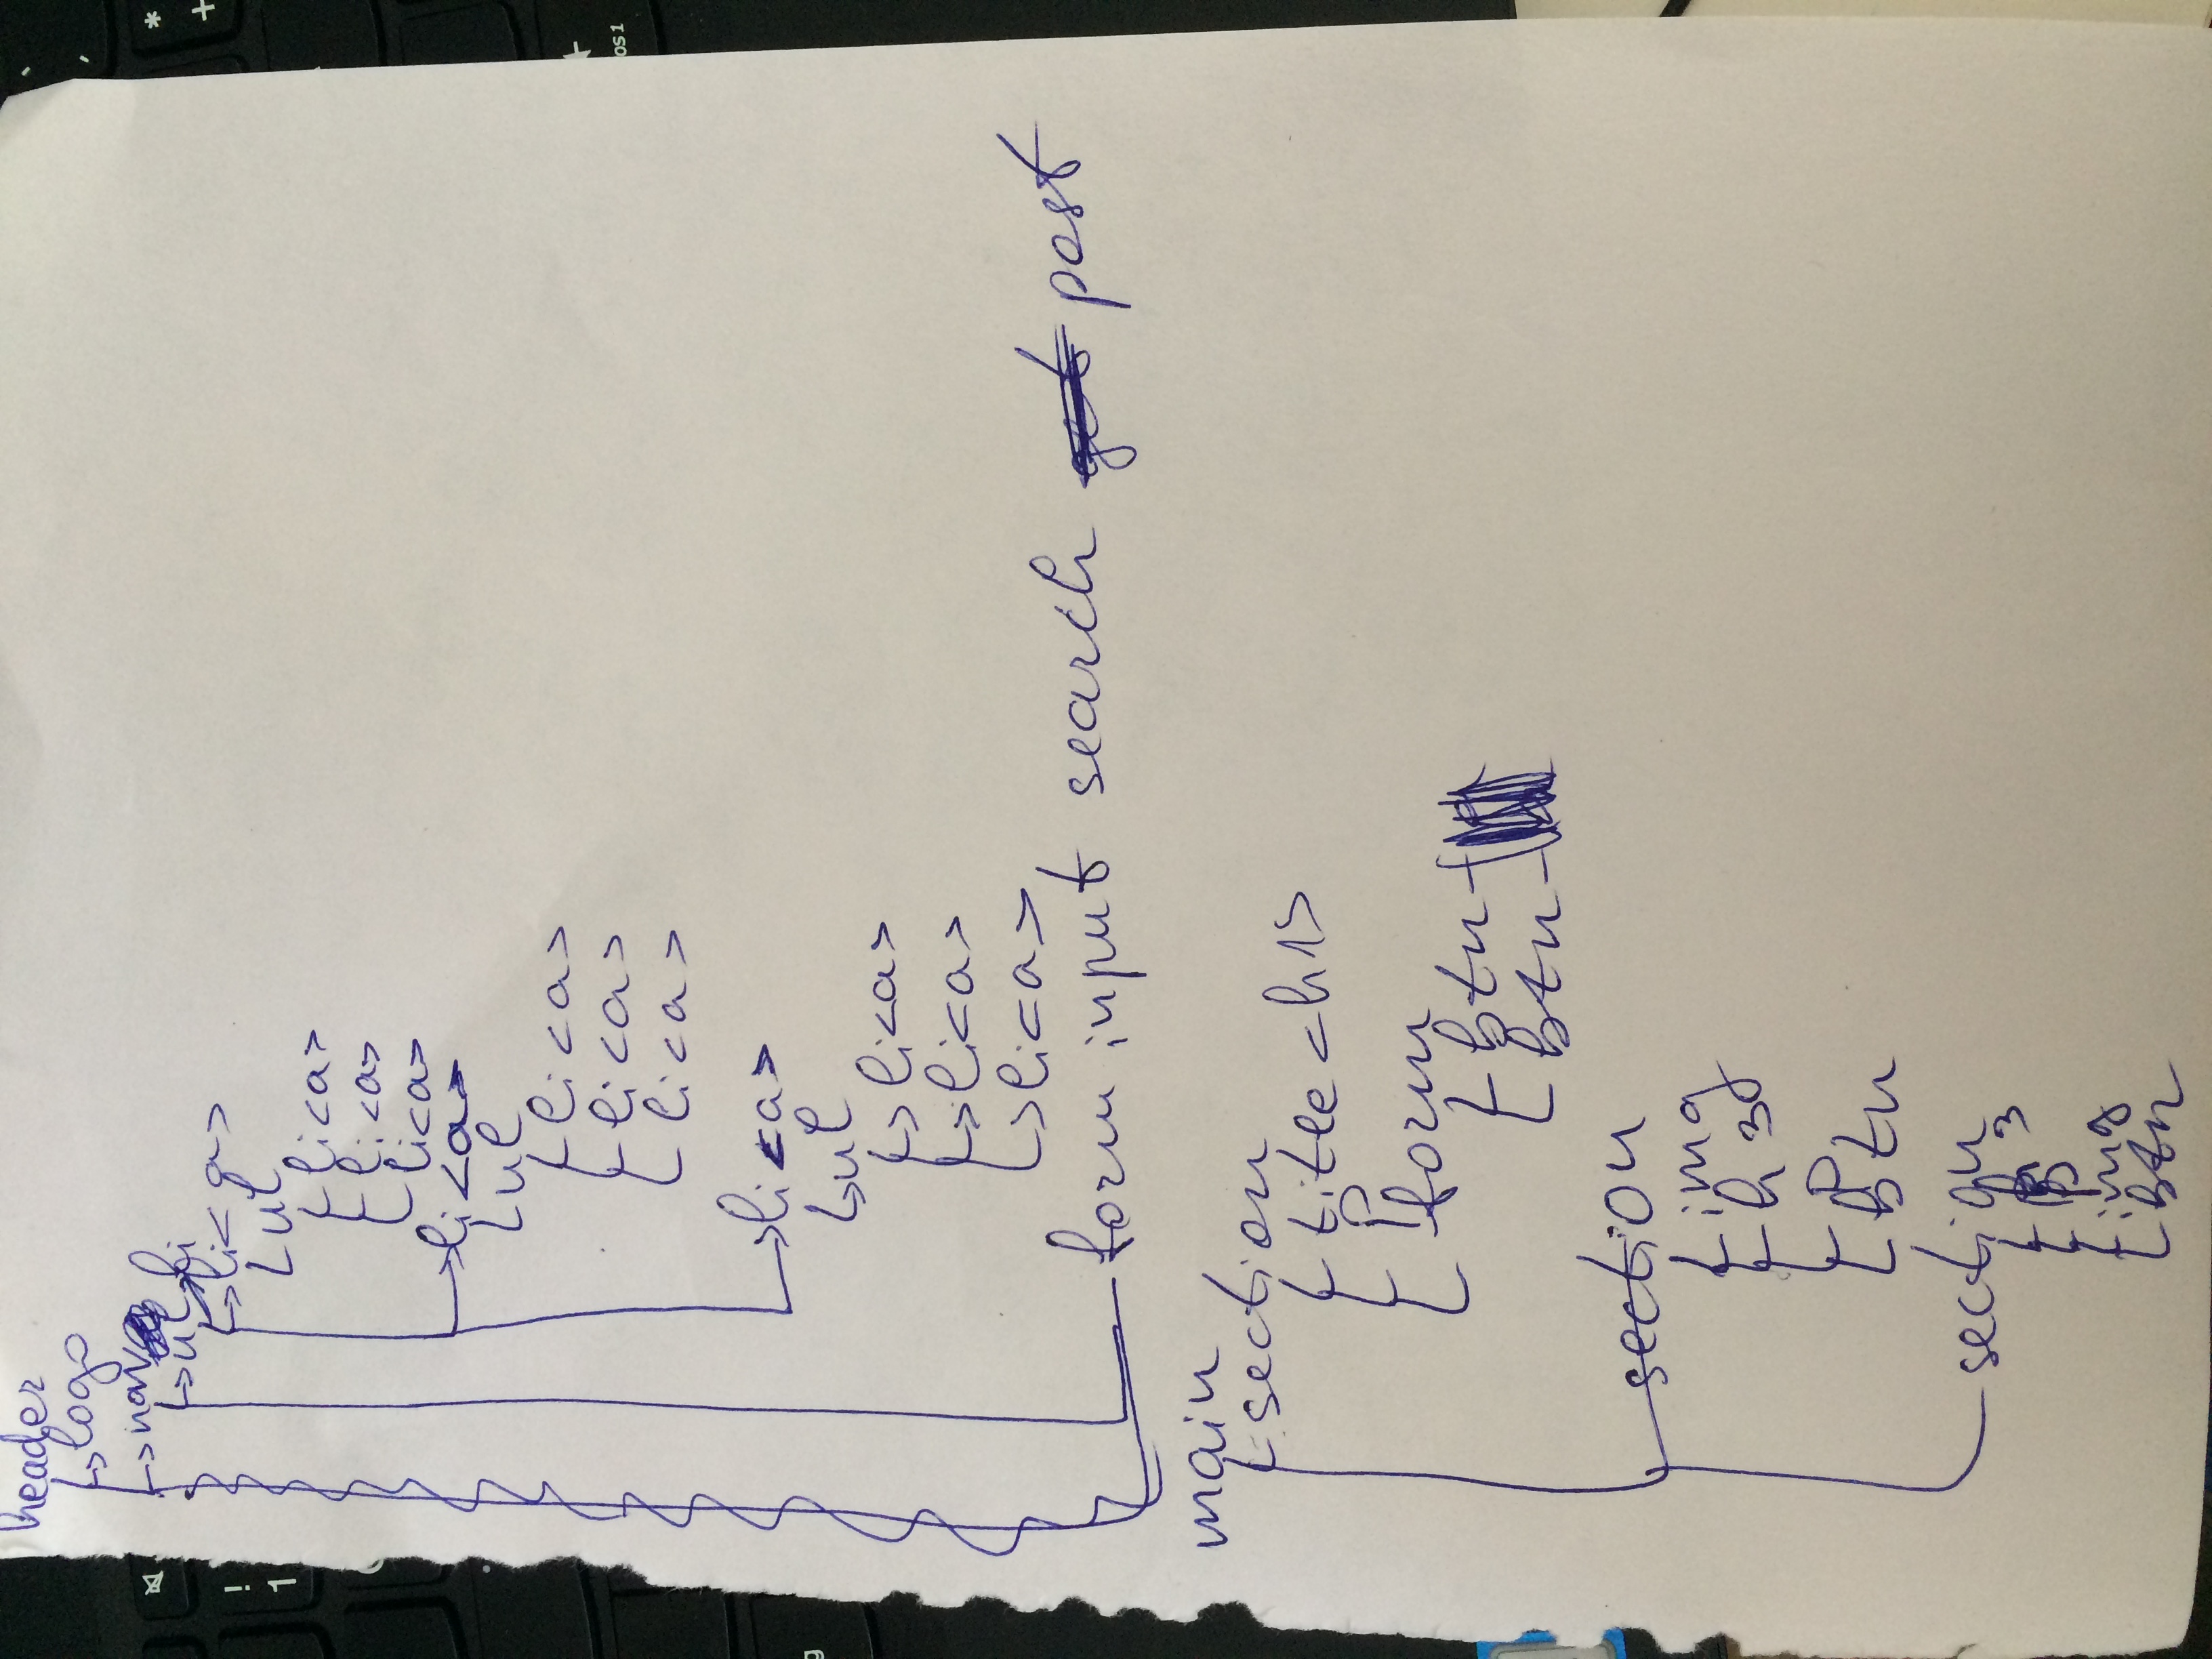 header
logo
nav
ul li
li <a>
ul
li <a>
li <a>
li <a>
li <a>
ul
li <a>
li <a>
li <a>
li <a>
ul
li <a>
li <a>
li <a>
form input search get post
main
section
title <h1>
p
form
btn
btn
section
img
h3
p
btn
section
h3
p
img
btn